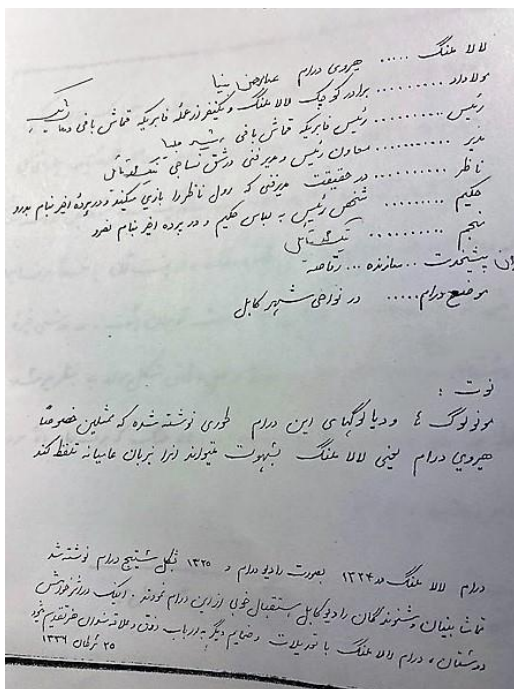 لالا ملنگ ..... هیروی درام عبدالرحمن بینا
مولاداد .......... برادر کوچک لالا ملنگ و یکنفر از عمله فابریکه قماش بافی
رئیس .......... رئیس فابریکه قماش بافی
نذیر .......... معاون رئیس و مدیر فنی در شق نساجی
ناظر .......... در حقیقت مدیر فنی که رول ناظر را بازی میکند و در پرده اخیر بنام
حکیم ........ شخص رئیس به لباس حکیم و در پرده اخیر بنام
منجم ..........
پیشخدمت .. سازنده ... رقاصه
موضع درام ..... در نواحی شهر کابل
نوت :
مونولوگ ها و دیالوگهای این درام طوری نوشته شده که ممثلین خصوصاً
هیروی درام یعنی لالا ملنگ بسهولت میتواند آنرا بزبان عامیانه تلفظ کند
درام لالا ملنگ در ۱۳۲۴ بصورت رادیو درام و ۱۳۲۵ بشکل ستیج درام نوشته شد
تماشا بینان و شنوندگان رادیو کابل استقبال خوبی از این درام نمودند . اینک در اثر خواهش
دوستان ، درام لالا ملنگ با تعدیلات و ضمایم دیگر به ارباب ذوق و علاقمندان هنر تقدیم میشود
۲۵ سرطان ۱۳۳۶